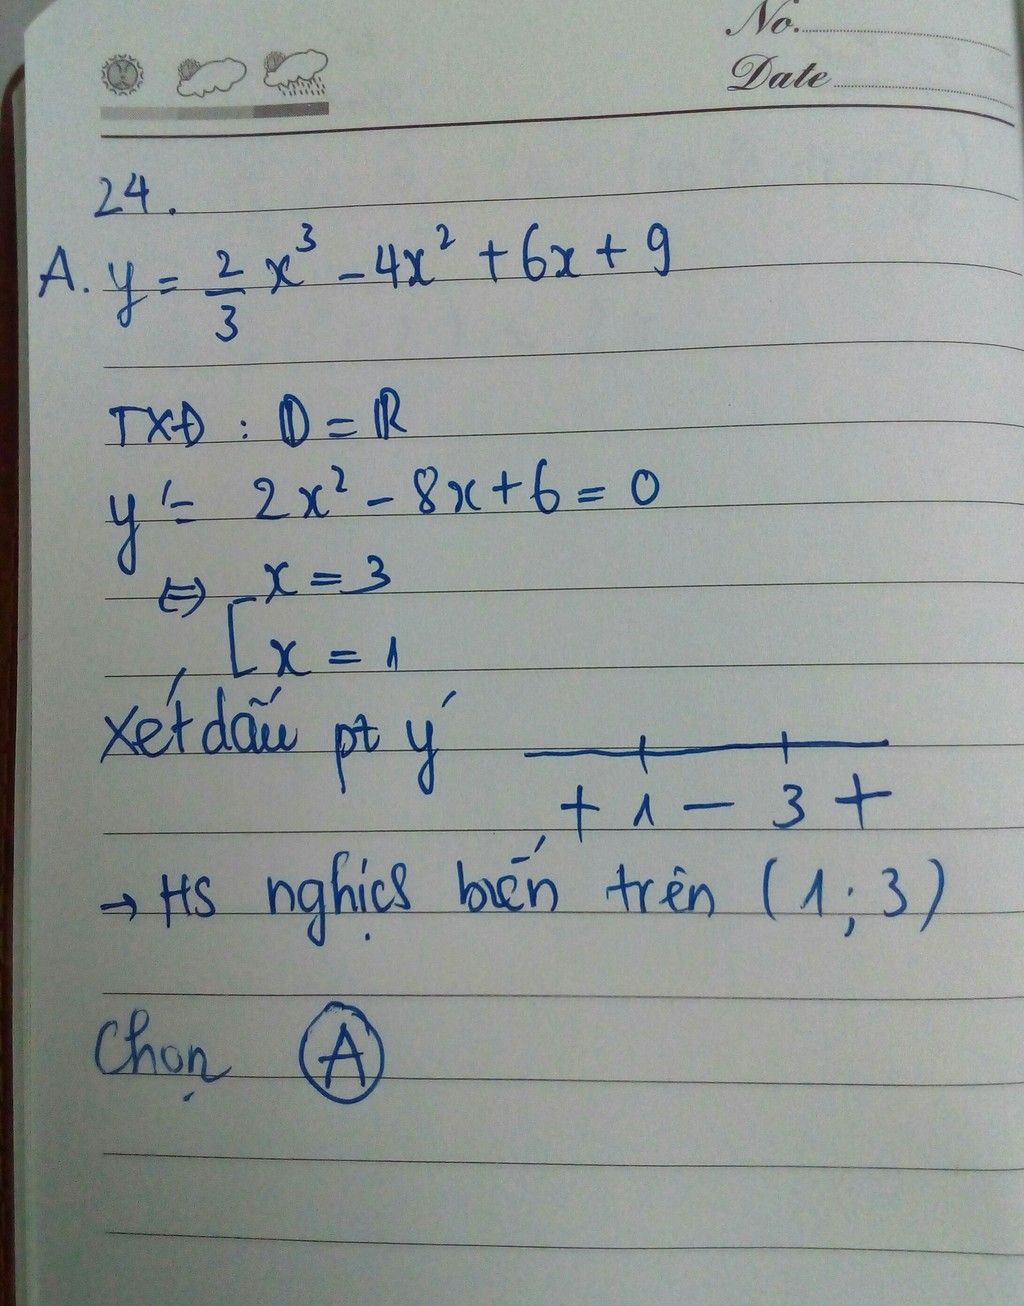 No.
Date
24.
A. y = 2/3 x³ - 4x² + 6x + 9
TXĐ : D = ℝ
y' = 2x² - 8x + 6 = 0
⇔ [ x = 3
x = 1
Xét dấu pt y'
+ 1 - 3 +
→ HS nghịch biến trên (1 ; 3)
Chọn A